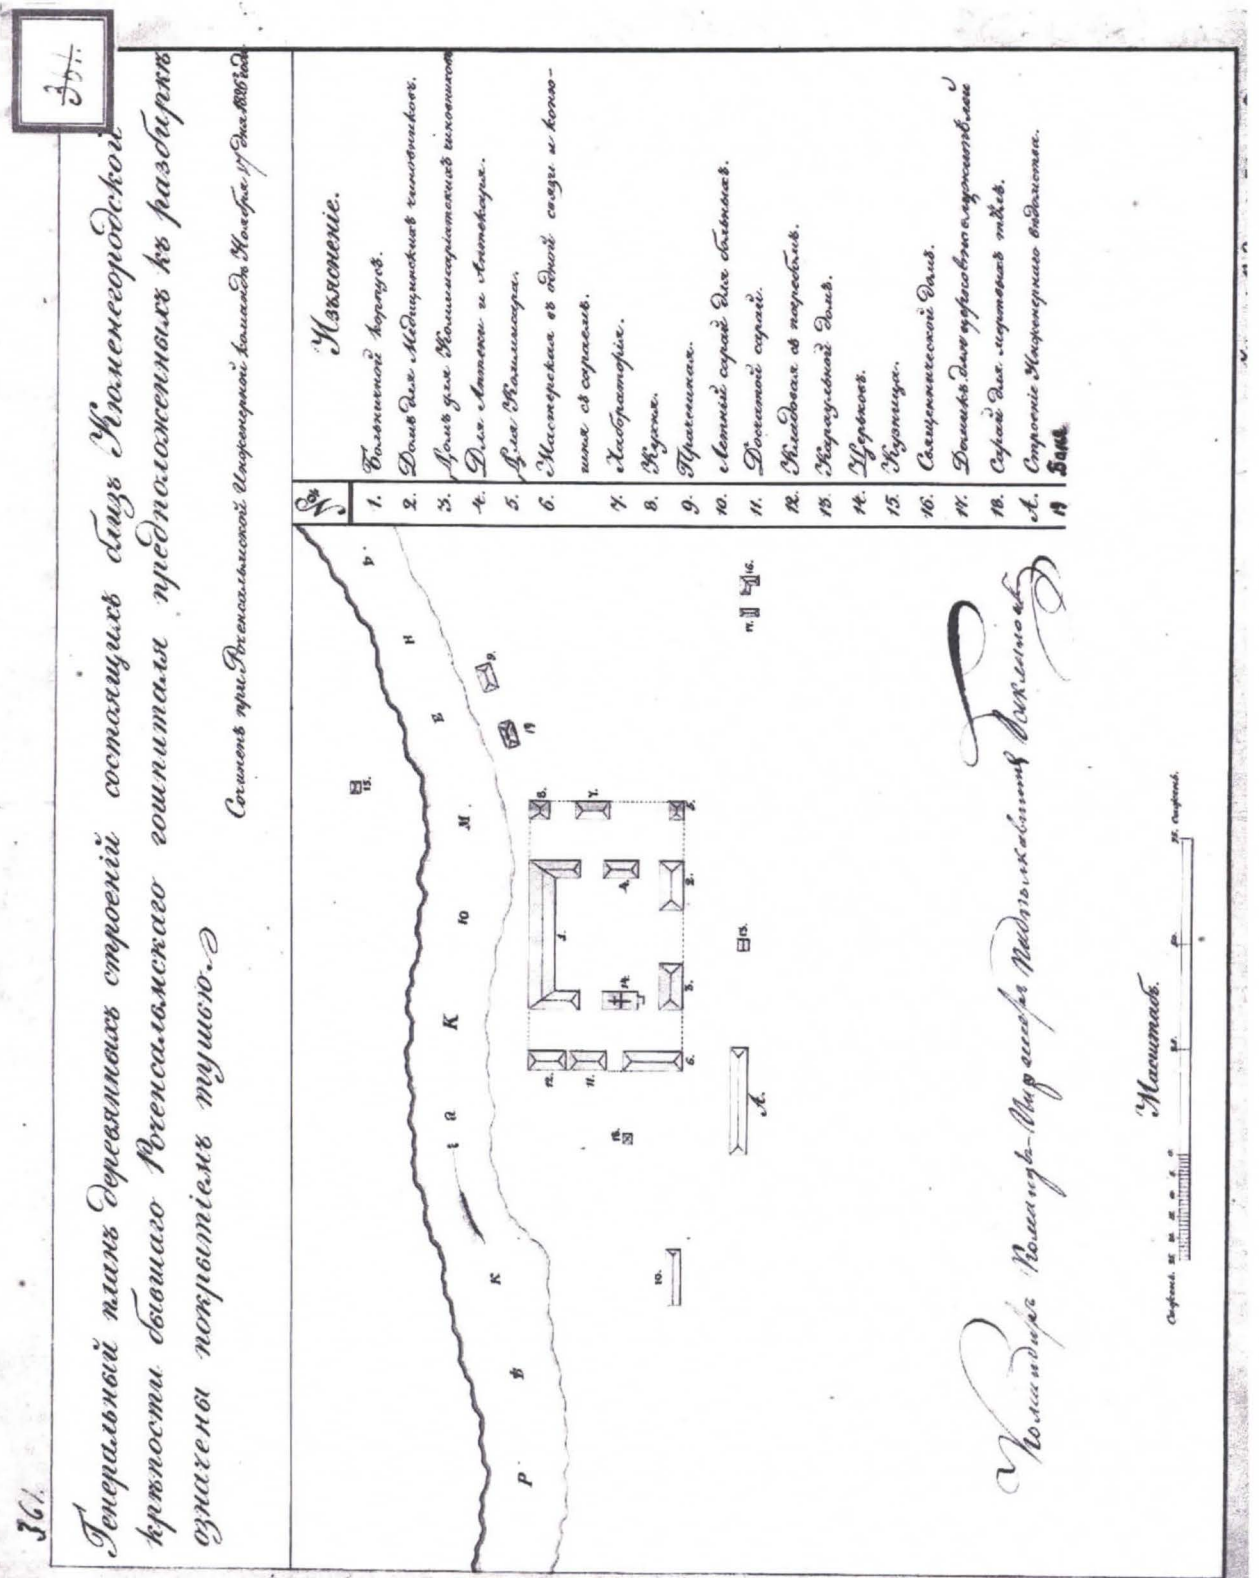 361.
361.
Генеральный планъ деревянныхъ строеній состоящихъ близъ Кюменегородской
крѣпости бывшаго Роченсальмскаго гошпиталя предположенныхъ къ разбиркѣ
означены покрытіемъ тушью.
Сочиненъ при Роченсальмской Инженерной командѣ Ноября дня 1836 года
№
Изъясненіе.
1. Больничной корпусъ.
2. Домъ для Медицинскихъ чиновниковъ.
3. Домъ для Коммиссаріатскихъ чиновниковъ
4. Для Аптеки и Аптекаря.
5. Для Коммисара.
6. Мастерская въ одной связи и коню-
шня съ сараемъ.
7. Лабраторія.
8. Кухня.
9. Прачешная.
10. Летній сарай для больныхъ.
11. Досчатой сарай.
12. Кладовая съ погребомъ.
13. Караульной домъ.
14. Церьковь.
15. Кузница.
16. Священнической домъ.
17. Домикъ для церковнослужителей
18. Сарай для мертвыхъ тѣлъ.
А. Строеніе Инженернаго вѣдомства.
19 Баня
Р ѣ к а К Ю М Е Н Ч.
15.
9.
19
8.
7.
5.
4.
2.
1.
14.
3.
12.
11.
6.
18.
10.
А.
13.
17.
16.
Командиръ Командъ Инженеръ Подполковникъ
Масштабъ.
Сажень.
Сажень.